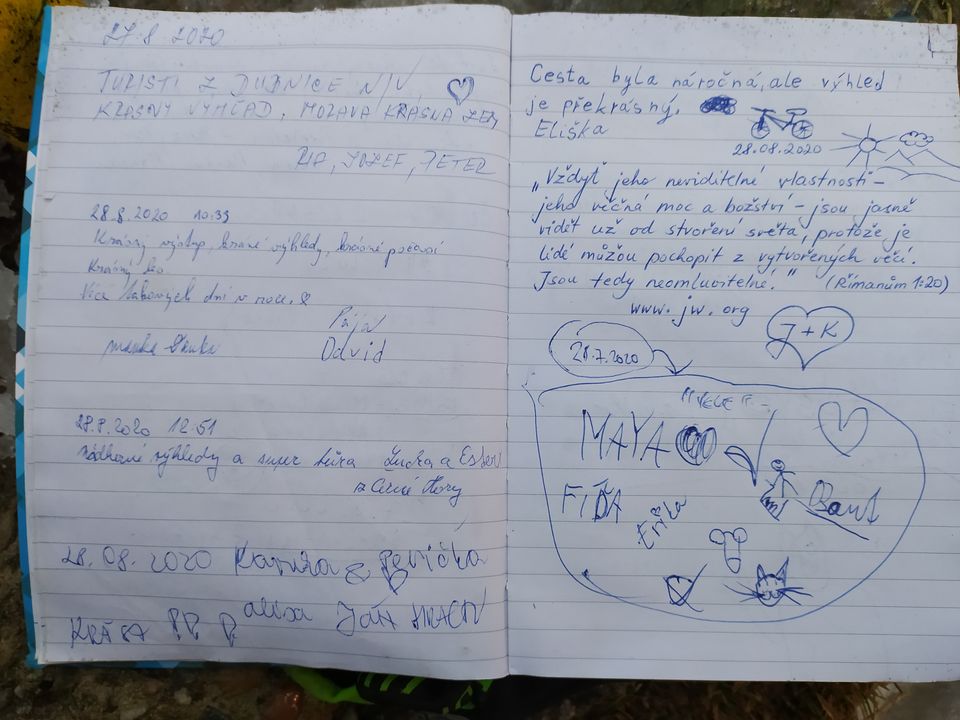 27.8 2020
TURISTI Z DUBNICE N/V,
KRASNY VYHĽAD, MORAVA KRASNA ZEM
JOZEF, PETER
28.8.2020 10:33
Krásný výstup, krásné výhledy, krásné počasí
Krásný
Více takových dní v roce.
Pája
David
28.8.2020 12:51
Nádherné výhledy a super túra Lucka a
z Černé Hory
28.08.2020 &
KRÁSA JÁN
Cesta byla náročná, ale výhled
je překrásný.
Eliška
28.08.2020
„Vždyť jeho neviditelné vlastnosti –
jeho věčná moc a božství – jsou jasně
vidět už od stvoření světa, protože je
lidé můžou pochopit z vytvořených věcí.
Jsou tedy neomluvitelné." (Římanům 1:20)
www.jw.org
J + K
28.7.2020
MAYA
FÍĎA